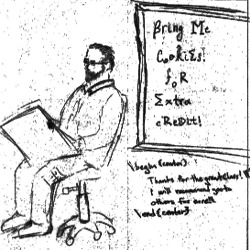 Bring Me
Cookies!
foR
Extra
cReDit!
\begin{center}
Thanks for the great class!
I will recommend you to
others for sure!!
\end{center}